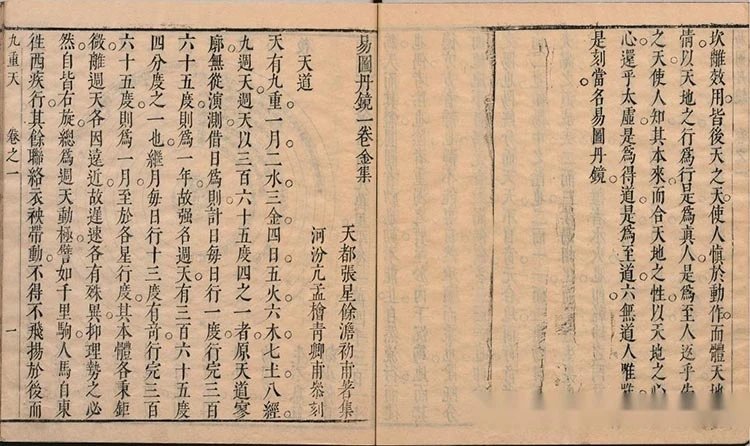 坎離效用皆後天之天使人慎於動作而體天地
情以天地之行爲行是爲真人是爲至人逐乎先
之天使人知其本來而合天地之性以天地之心
心還乎太虛是爲得道是爲至道六無道人唯唯
是刻當名易圖丹鏡
易圖丹鏡一卷金集
天都張星餘澹初甫著集
河汾亢孟檜青卿甫叅刻
天道
天有九重一月二水三金四日五火六木七土八經
九週天週天以三百六十五度四之一者原天道寥
廓無從演測借日爲則計日每日行一度行完三百
六十五度則爲一年故强名週天有三百六十五度
四分度之一也繼月每日行十三度有奇行完三百
六十五度則爲一月至於各星行度其本體各秉鉅
微離週天各因遠近故遲速各有殊異抑理勢之必
然自皆右旋總爲週天動極譬如千里駒人馬自東
徃西疾行其餘聯絡衣袂帶動不得不飛揚於後而
九重天 卷之一 一